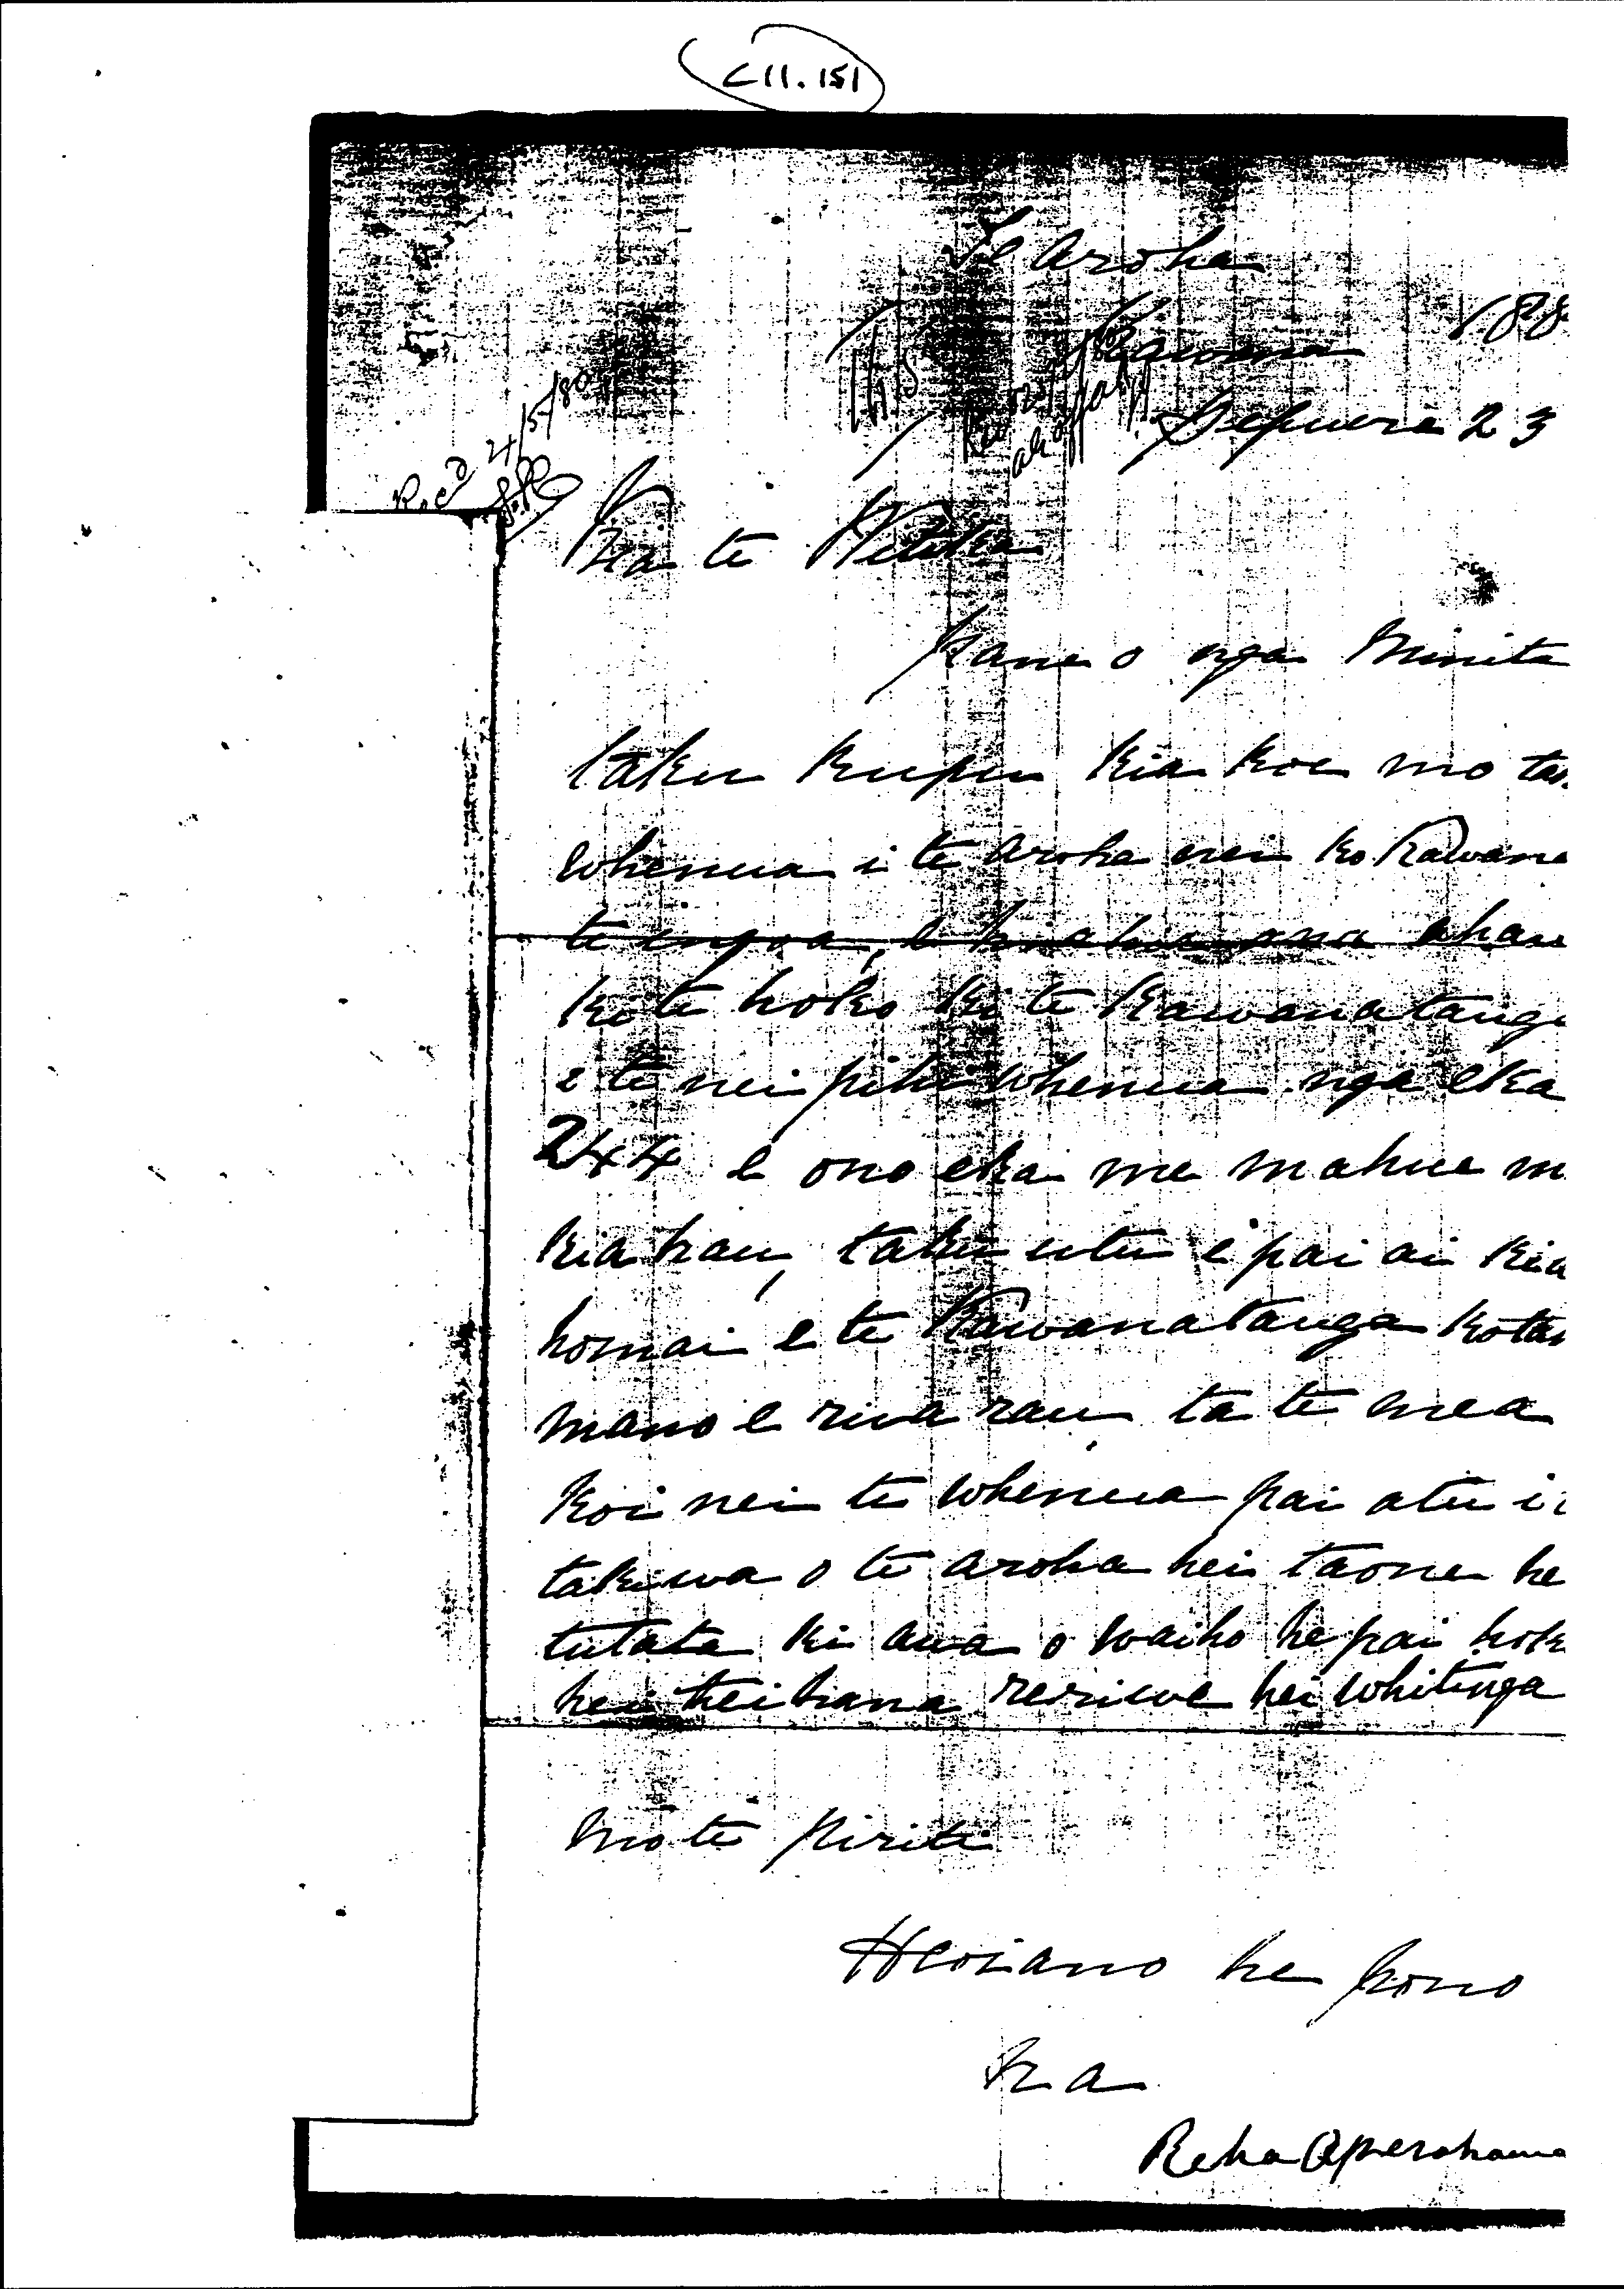 C11.151
Te Aroha
188
Kawana
Pepuere 23
Recd 24/5/80
Kia te Witika
Kane o nga Minita
taku kupu kia koe mo ta
whenua i te aroha nei ko Kawana
te ingoa, e ahau
ki te hoko ki te Kawanatanga
e te nei pihi whenua nga eka
244 e ono eka me mahue m
kia hau, taku utu e pai ai kia
homai e te Kawanatanga kota
mano e rua rau ta te mea
koi nei te whenua pai atu i
takiwa o te aroha hei taone he
tutata ki awa o waiho he pai hok
hei teihana reriwe hei whitinga
mo te piriti
Heoiano he pono
na
Reha Aperahama